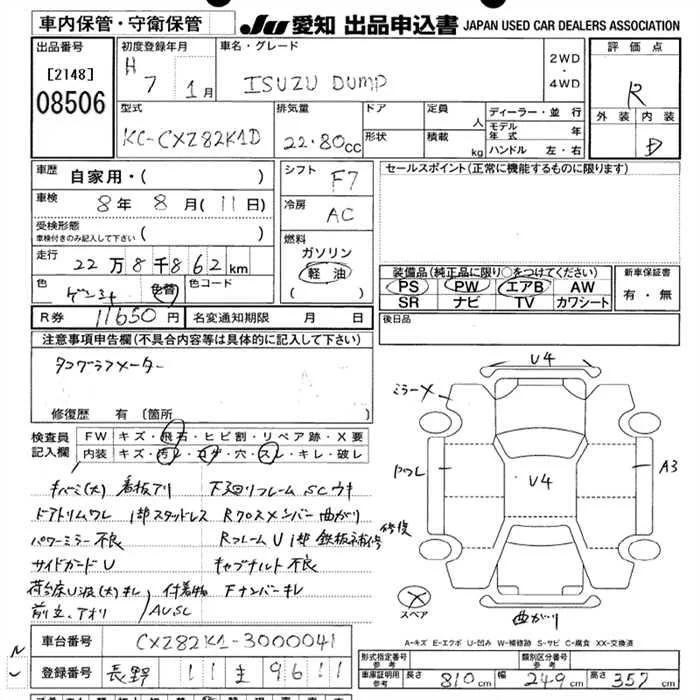 車内保管・守衛保管 JU 愛知 出品申込書 JAPAN USED CAR DEALERS ASSOCIATION
出品番号 初度登録年月 車名・グレード 評価点
[2148] H 7 1月 ISUZU DUMP 2WD・4WD R
08506 型式 排気量 ドア 定員 人 ディーラー・並行 外装 内装
KC-CXZ82K1D 22.80cc 形状 積載 kg モデル年式 年 D
ハンドル 左・右
車歴 自家用・( ) シフト F7 セールスポイント(正常に機能するものに限ります)
車検 8年8月(11日) 冷房 AC
受検形態 車検付きのみ記入して下さい ( )
燃料 ガソリン
走行 22万8千862km 軽油 装備品(純正品に限り○をつけてください) 新車保証書
色 色替 色コード ( ) PS PW エアB AW 有・無
SR ナビ TV カワシート
R券 11650円 名変通知期限 月 日 後日品
注意事項申告欄(不具合内容等は具体的に記入して下さい)
タコグラフメーター
修復歴 有 [箇所
V4
ミラーX
検査員記入欄 FW キズ・飛石・ヒビ割・リペア跡・X要
内装 キズ・汚レ・コゲ・穴・スレ・キレ・破レ
V4 A3
キバミ(大) 看板アリ 下廻リフレームSCウキ
ドアトリムワレ 1部スタッドレス Rクロスメンバー曲がり 修復
パワーミラー不良 RフレームU 1部鉄板補修
サイドガードU キャブチルト不良
荷台床U波(大)キレ 付着物 Fナンバーキレ
前立、アオリ AUSC
スペア 曲がり
車台番号 CXZ82K1-3000041
A-キズ E-エクボ U-凹み W-補修跡 S-サビ C-腐食 XX-交換済
登録番号 長野 11 9611
形式指定番号 参考 類別区分番号 参考
車庫証明用 参考 長さ 810cm 幅 249cm 高さ 357cm